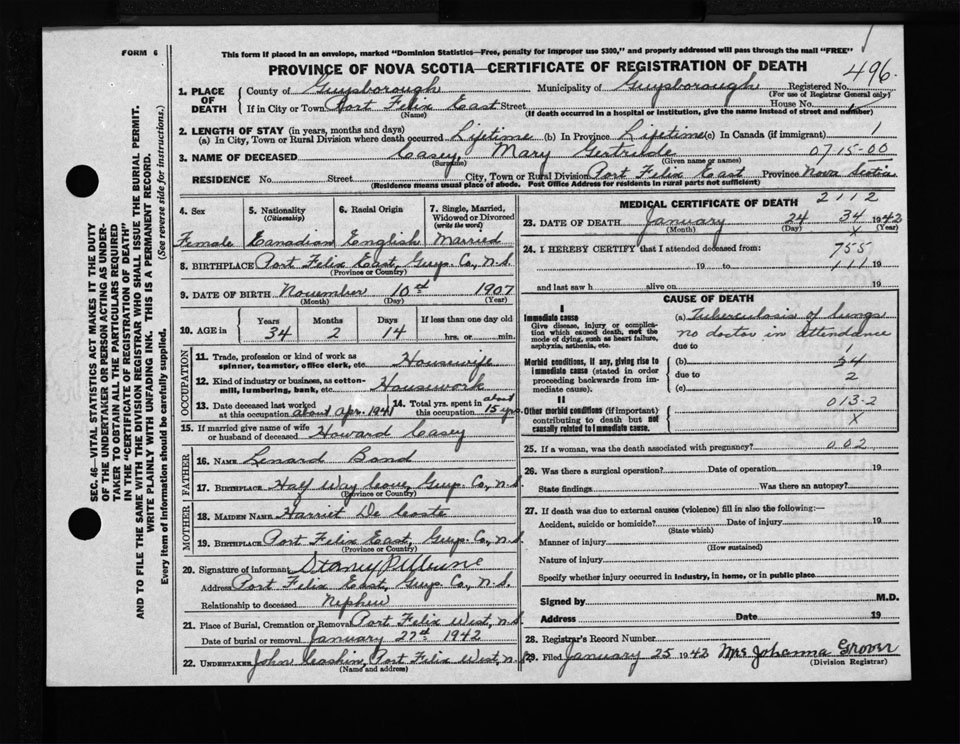 FORM 6
This form if placed in an envelope, marked "Dominion Statistics—Free, penalty for improper use $300," and properly addressed will pass through the mail "FREE"
PROVINCE OF NOVA SCOTIA—CERTIFICATE OF REGISTRATION OF DEATH
496.
1. PLACE OF DEATH County of Guysborough Municipality of Guysborough Registered No.
(For use of Registrar General only)
If in City or Town Port Felix East Street House No.
(Name) (If death occurred in a hospital or institution, give the name instead of street and number)
2. LENGTH OF STAY (in years, months and days)
(a) In City, Town or Rural Division where death occurred Lifetime (b) In Province Lifetime (c) In Canada (if immigrant) 1
3. NAME OF DECEASED Casey, Mary Gertrude 0715-00
(Surname) (Given name or names)
RESIDENCE No. Street City, Town or Rural Division Port Felix East Province Nova Scotia
(Residence means usual place of abode. Post Office Address for residents in rural parts not sufficient)
4. Sex Female
5. Nationality (Citizenship) Canadian
6. Racial Origin English
7. Single, Married, Widowed or Divorced (write the word) Married
8. BIRTHPLACE Port Felix East, Guys. Co, N.S.
(Province or Country)
9. DATE OF BIRTH November 10st 1907
(Month) (Day) (Year)
10. AGE in Years Months Days If less than one day old
34 2 14 hrs. or min.
OCCUPATION
11. Trade, profession or kind of work as spinner, teamster, office clerk, etc. Housewife
12. Kind of industry or business, as cotton-mill, lumbering, bank, etc. Housework
13. Date deceased last worked at this occupation about Apr. 1941
14. Total yrs. spent in this occupation about 15 yrs
15. If married give name of wife or husband of deceased Howard Casey
FATHER
16. NAME Lenard Bond
17. BIRTHPLACE Half Way Cove, Guys. Co, N.S.
(Province or Country)
MOTHER
18. MAIDEN NAME Harriet De Coste
19. BIRTHPLACE Port Felix East, Guys. Co, N.S.
(Province or Country)
20. Signature of informant
Address Port Felix East, Guys. Co, N.S.
Relationship to deceased Nephew
21. Place of Burial, Cremation or Removal Port Felix West, N.S.
Date of burial or removal January 27st 1942
22. UNDERTAKER John Cashin, Port Felix West, N.S.
(Name and address)
MEDICAL CERTIFICATE OF DEATH 2112
23. DATE OF DEATH January 24 34 1942
(Month) (Day) X (Year)
24. I HEREBY CERTIFY that I attended deceased from: 755
19 to 111 19
and last saw h alive on 19
CAUSE OF DEATH
I
Immediate cause
Give disease, injury or complication which caused death, not the mode of dying, such as heart failure, asphyxia, asthenia, etc.
(a) Tuberculosis of lungs
no doctor in attendance
due to 1
Morbid conditions, if any, giving rise to immediate cause (stated in order proceeding backwards from immediate cause).
(b) 34
due to 2
(c)
II
Other morbid conditions (if important) contributing to death but not causally related to immediate cause.
013-2
X
25. If a woman, was the death associated with pregnancy? 002
26. Was there a surgical operation? Date of operation 19
State findings Was there an autopsy?
27. If death was due to external causes (violence) fill in also the following:—
Accident, suicide or homicide? Date of injury 19
(State which)
Manner of injury
(How sustained)
Nature of injury
Specify whether injury occurred in industry, in home, or in public place.
Signed by M.D.
Address Date 19
28. Registrar's Record Number
29. Filed January 25 1942 Mrs Johanna Grover
(Division Registrar)
SEC. 46—VITAL STATISTICS ACT MAKES IT THE DUTY
OF THE UNDERTAKER OR PERSON ACTING AS UNDERTAKER TO OBTAIN ALL THE PARTICULARS REQUIRED
IN THE "CERTIFICATE OF REGISTRATION OF DEATH"
AND TO FILE THE SAME WITH THE DIVISION REGISTRAR WHO SHALL ISSUE THE BURIAL PERMIT.
WRITE PLAINLY WITH UNFADING INK. THIS IS A PERMANENT RECORD.
Every item of information should be carefully supplied. (See reverse side for instructions.)